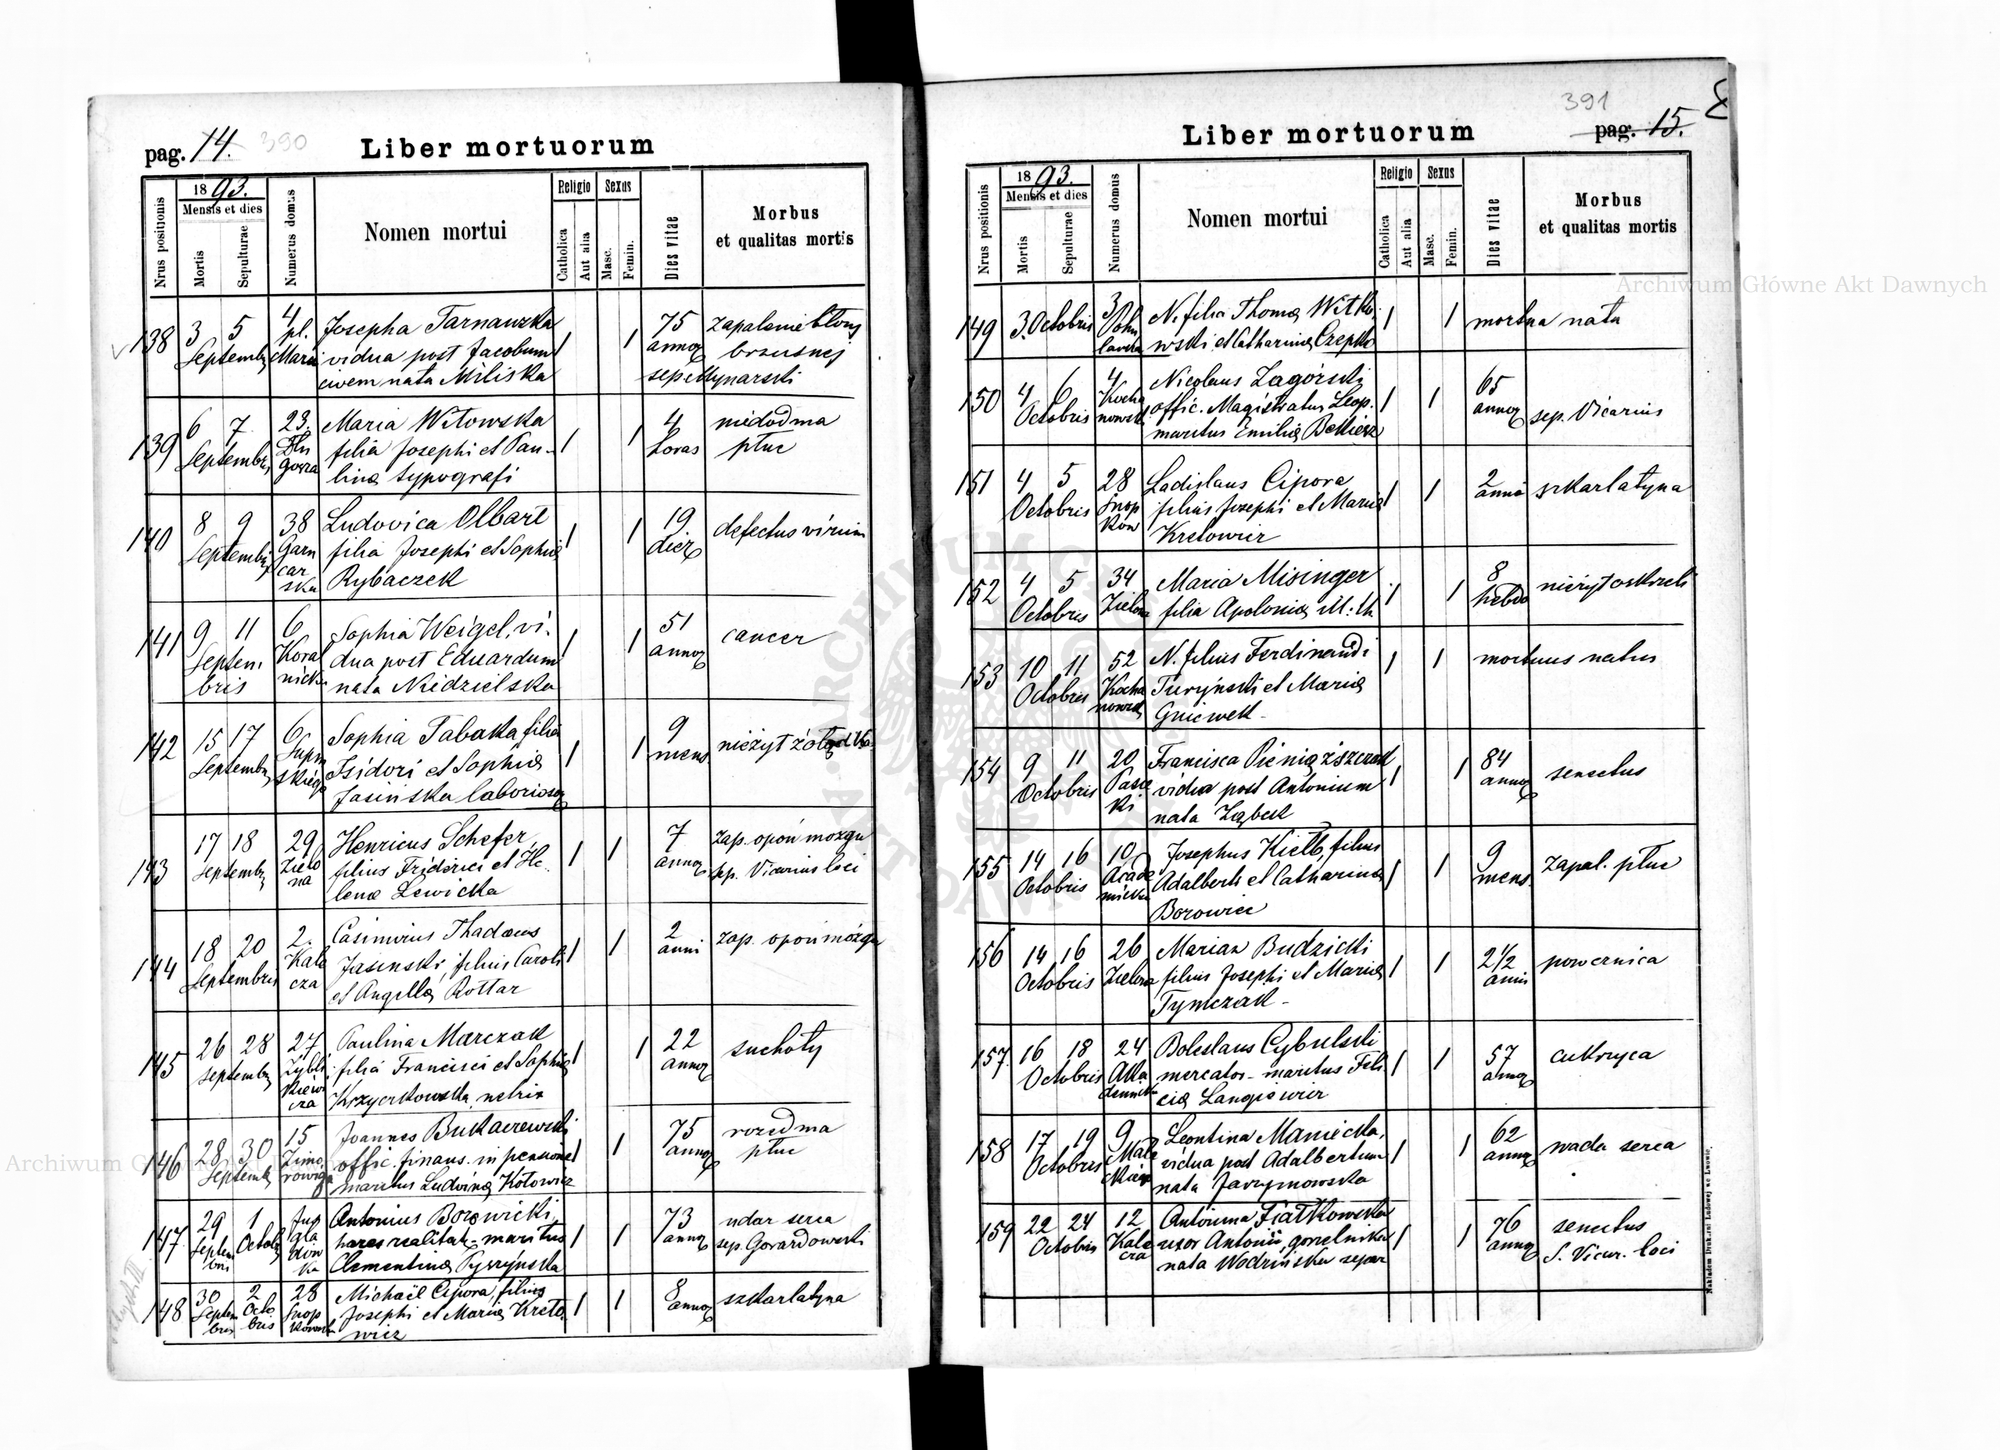 pag. 14. 390
Liber mortuorum
Nrus positionis
1893.
Mensis et dies
Mortis
Sepulturae
Numerus domus
Nomen mortui
Religio
Catholica
Aut alia
Sexus
Masc.
Femin.
Dies vitae
Morbus
et qualitas mortis
138 3 5 4 Josepha Tarnawska 1 1 75 zapalenie błony
Septembr pl. Maria vidua post Jacobum annor brzusznej
civem nata Miliska sep. Młynarski
139 6 7 23. Maria Witowska 1 1 4 niedodma
Septembris filia Josephi et Pau- horas płuc
linae typografi
140 8 9 38 Ludovica Olbart 1 1 19 defectus virium
Septembr Garn filia Josephi et Sophiae dier
car Rybaczek
ska
141 9 11 6 Sophia Weigel, vi- 1 1 51 cancer
Septem- Koral dua post Eduardum annor
bris nicka nata Niedzielska
142 15 17 6 Sophia Tabaka filia 1 1 9 nieżyt żołądka
Septembr Supin Isidori et Sophiae mens
skiego Jasińska laboriosor
143 17 18 29 Henricus Schefer 1 1 7 zap. opon mózgu
Septembr Zielo filius Friderici et He- annor sep. Vicarius loci
na lenae Lewicka
144 18 20 2. Casimirus Thadaeus 1 1 2 zap. opon mózgu
Septembris Kale Jasenski, filius Caroli anni
cza et Angelae Rottar
145 26 28 27 Paulina Marczak 1 1 22 suchoty
Septembr Zybli filia Francisci et Sophiae annor
kiewi Krzyczkowska, netrix
cza
146 28 30 15 Joannes Bukaczewski 1 75 rozedma
Septemb Zimo offic. finans. in pensione annor płuc
rowicza maritus Ludvinae Kotowicz
147 29 1 Antonius Borowicki, 1 1 73 udar serca
Septem Octobr haeres realitat - maritus annor sep. Gorardowski
bris Clementinae Pyszyńska
148 30 2 28 Michaël Cipora, filius 1 1 8 szkarlatyna
Septem Octo Snop Josephi et Mariae Kreto- annor
bris bris kowska wicz
391
Liber mortuorum
pag. 15.
Nrus positionis
1893.
Mensis et dies
Mortis
Sepulturae
Numerus domus
Nomen mortui
Religio
Catholica
Aut alia
Sexus
Masc.
Femin.
Dies vitae
Morbus
et qualitas mortis
149 3. Octobris 3 N. filia Thomae Witko- 1 1 mortua nata
wski et Catharinae Czepko
150 4 6 4 Nicolaus Zagórski 1 1 65 sep. Vicarius
Octobris Kocha offic. Magistratus Leop. annor
nowski maritus Emiliae
151 4 5 28 Ladislaus Cipora 1 1 2 szkarlatyna
Octobris Snop filius Josephi et Mariae anni
kow Kretowicz
152 4 5 34 Maria Misinger 1 1 8 nieżyt oskrzeli
Octobris Zielona filia Apoloniae hebdo
153 10 11 52 N. filius Ferdinandi 1 1 mortuus natus
Octobris Kocha Turyński et Mariae
nowski Gniewek -
154 9 11 20 Francisca 1 1 84 senectus
Octobris Pase vidua post Antonium annor
ki nata Ząbek
155 14 16 10 Josephus Kiełb, filius 1 1 9 zapal. płuc
Octobris Acade Adalberti et Catharinae mens.
micka Borowiec
156 14 16 26 Marian Budzicki 1 1 2 1/2 powernica
Octobris Zielona filius Josephi et Mariae anni
Tymczak -
157. 16 18 24 Boleslaus Cybulski 1 1 57 cukrzyca
Octobris Aka mercator - maritus Feli annor
demicka ciae Langiewicz
158 17 19 9 Leontina Maniecka, 1 1 62 wada serca
Octobris Male vidua post Adalbertum annor
nata Jarymowska
159 22 24 12 Antonina Fiałkowska 1 1 76 senectus
Octobris Kale uxor Antonii, gorzelnika annor S. Vicar. loci
cza nata Wodzińska separ
Nakładem Drukarni Ludowej we Lwowie.
Archiwum Główne Akt Dawnych